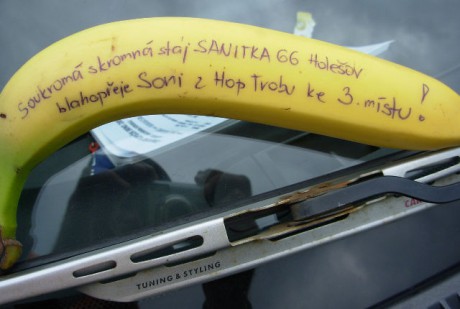 Soukromá skromná stáj SANITKA GG Holešov
blahopřeje Sorii z Hop Trobu ke 3. místu!
TUNING & STYLING